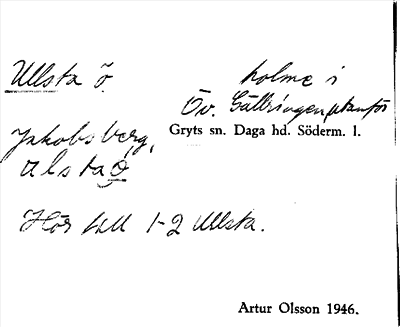 Ullsta ö holme i
Öv. Gällringen, utanför
Jakobsberg, Gryts sn. Daga hd. Söderm. l.
Ulsta ö
Hör till 1-2 Ullsta.
Artur Olsson 1946.